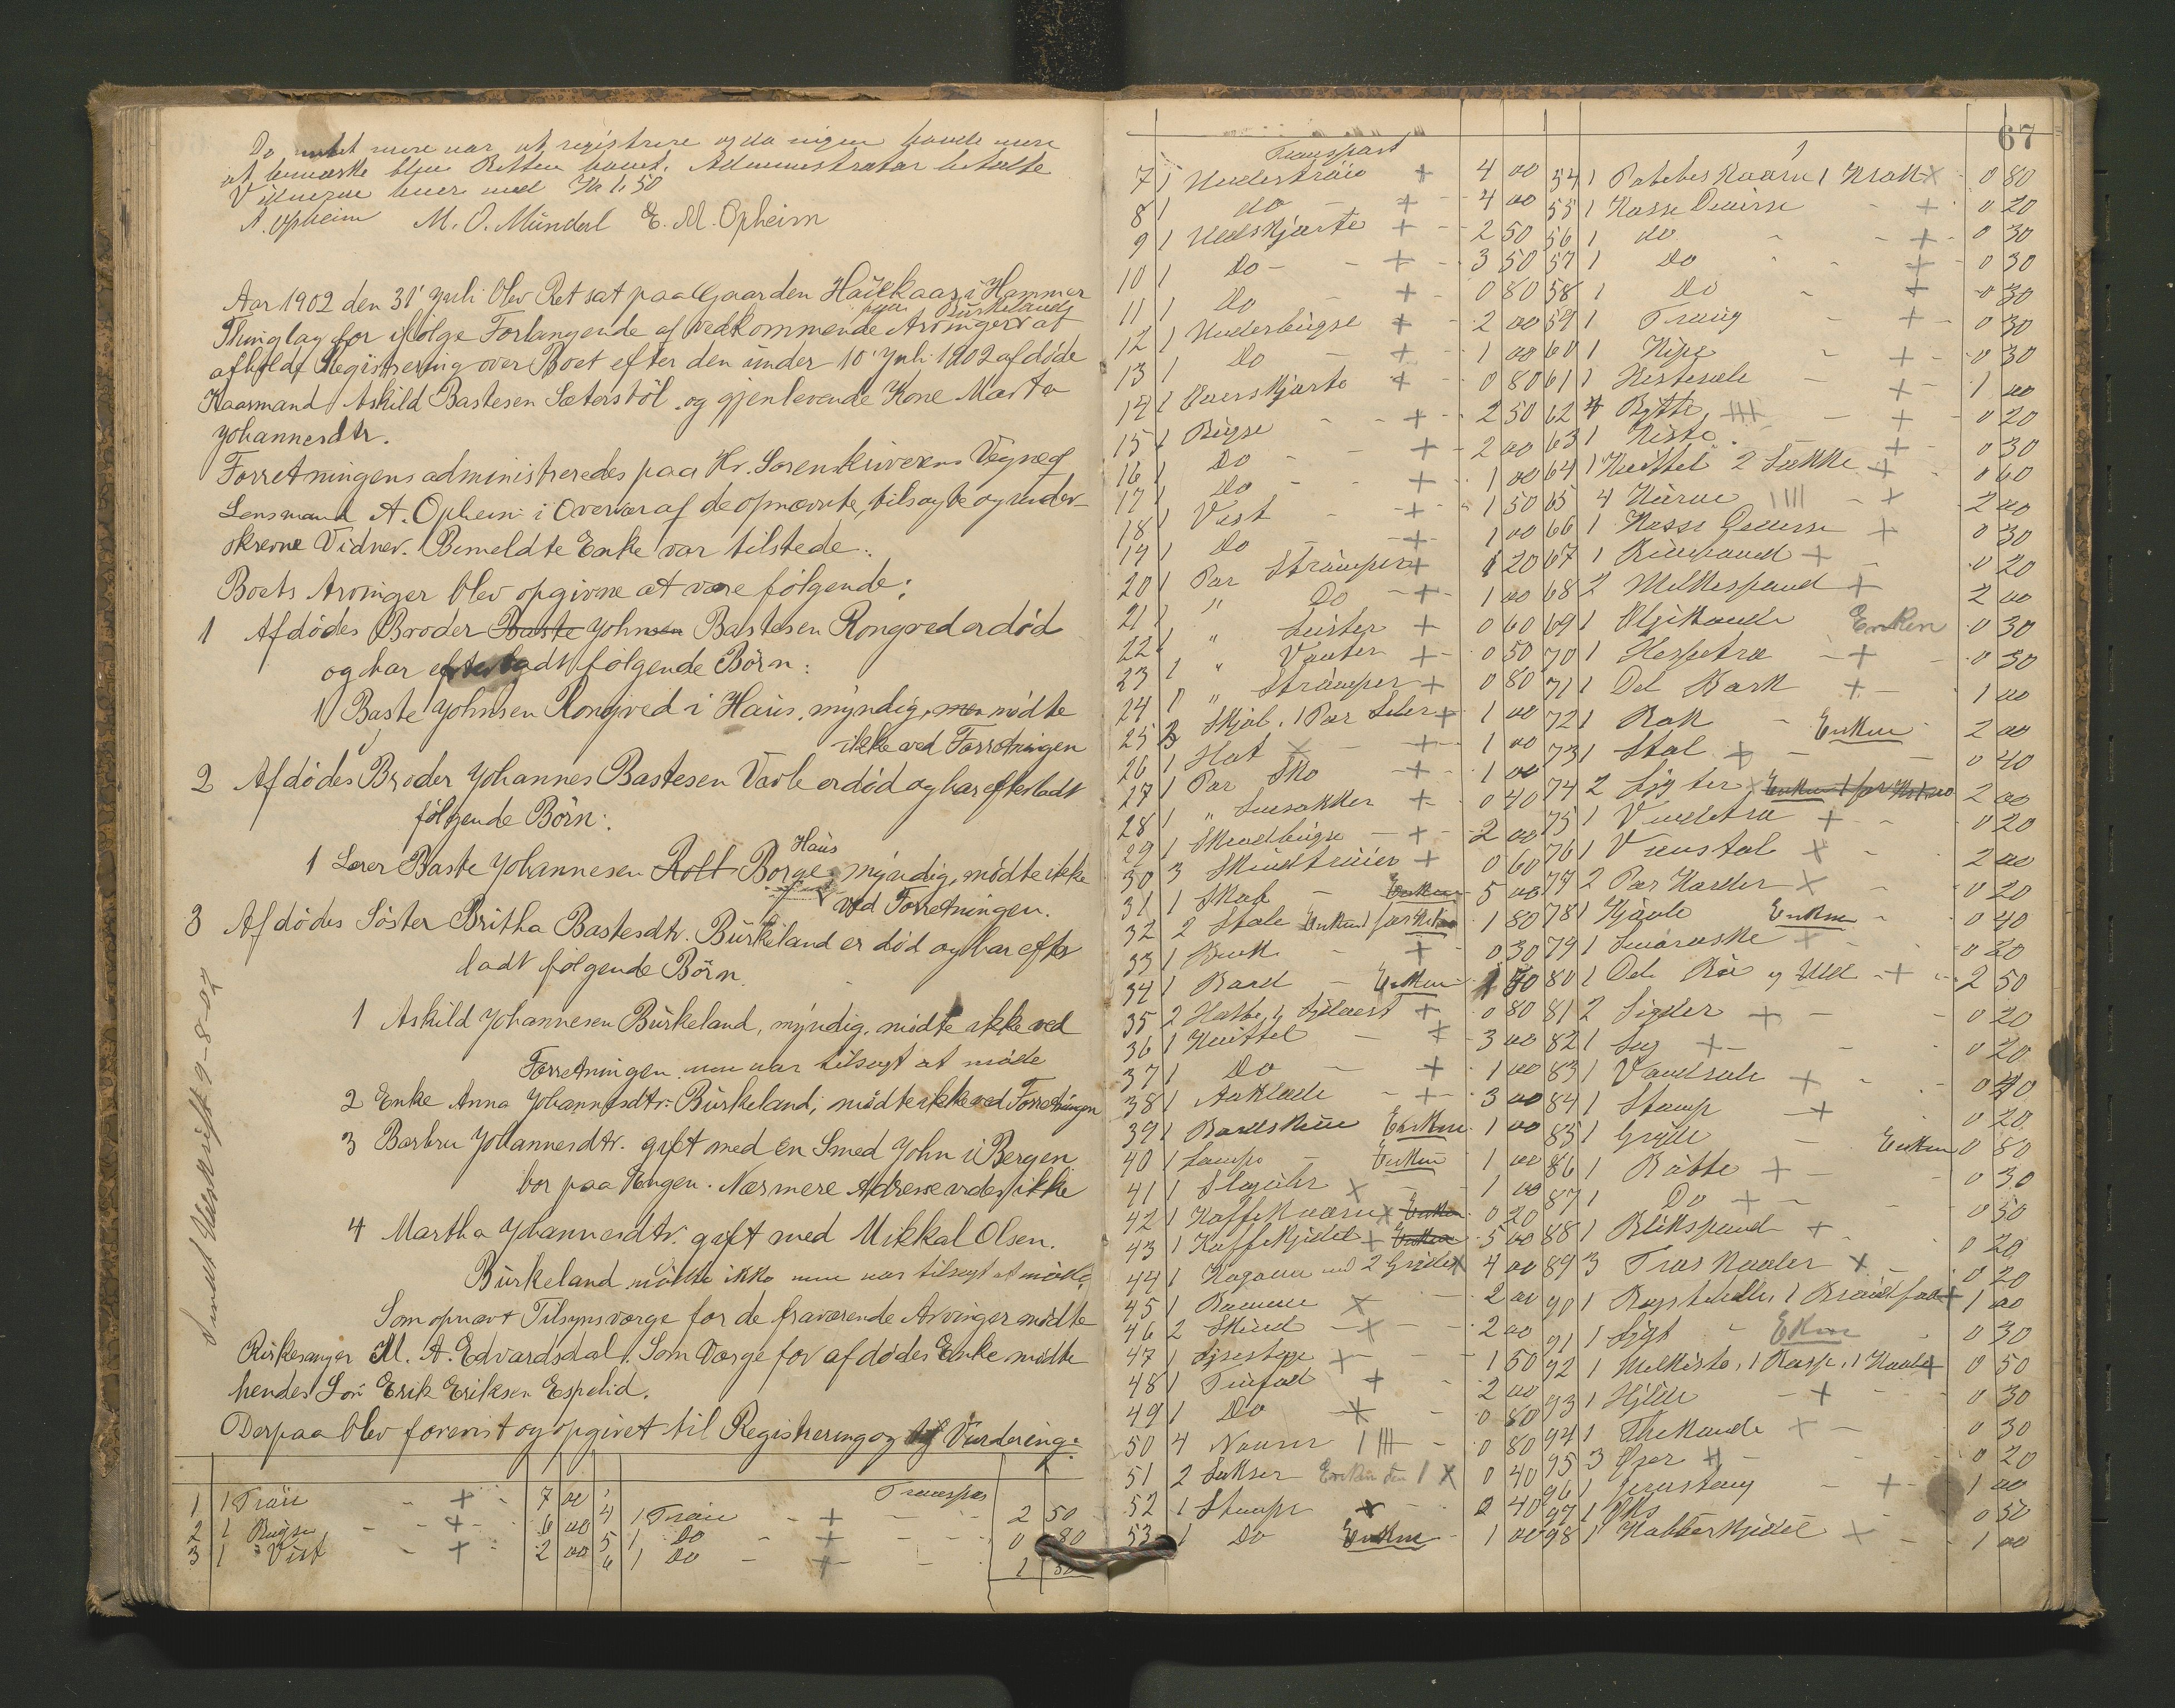 Da intet mere var at registrere og da ingen havde mere
at bemærke blev Retten hævet. Administrator betalte
Vidnerne hver med Kr 1,50
A. Opheim M. O. Mündal E. M. Opheim
Aar 1902 den 31' Juli blev Ret sat paa Gaarden i Hammer
Thinglag for ifölge Forlangende af vedkommende Arvinger at
afholde Registrering over Boet efter den ünder 10' Juli 1902 afdöde
Kaarmand Askild Bastesen Sæterstöl og gjenlevende Kone Marta
Johannesdtr.
Forretningen administreredes paa Hr. Sorenskriverens Vegne af
Lensmand A. Opheim i Overvær af de opnævnte, tilsagte og under-
skrevne Vidner. Bemeldte Enke var tilstede.
Boets Arvinger blev opgivne at være følgende:
1 Afdödes Broder Baste Johnsen Bastesen Rongved er död
og har efterladt følgende Börn:
1 Baste Johnsen Rongved i Haus, myndig, men mödte
ikke ved Forretningen
2 Afdödes Broder Johannes Bastesen Varle er död og har efterladt
følgende Börn:
Haus
1 Lærer Baste Johannesen Borge, myndig, mödte ikke
ved Forretningen.
3 Afdödes Söster Britha Bastesdtr. Bürkeland er död og har efter
ladt følgende Börn.
1 Askild Johannesen Bürkeland, myndig, mödte ikke ved
Forretningen men var tilsagt at möde
2 Enke Anna Johannesdtr. Bürkeland, mödte ikke ved Forretningen
3 Barbru Johannesdtr. gift med en Smed John i Bergen
bor paa Engen. Nærmere Adresse vides ikke
4 Martha Johannesdtr. gift med Mikkal Olsen.
Bürkeland mödte ikke men var tilsagt at möde.
Som opnævt Tilsynsværge for de fraværende Arvinger mödte
Kirkesanger M. A. Edvardsdal. Som Værge for afdödes Enke mödte
hendes Sön Erik Eriksen Espelid.
Derpaa blev forevist og opgivet til Registrering og Vurdering:
Sendt Udskrift 9-8-02
1 1 Tröie + 7 00
2 1 Bügse + 6 00
3 1 Vest + 2 00
Transport
4 1 Tröie + 2 50
5 1 Do + 0 80
6 1 Do + 1
67
Transport
7 1 Understrøie + 4 00
8 1 do + 4 00
9 1 Uldskjorte + 2 50
10 1 Do + 3 50
11 1 Do + 0 80
12 1 Underbügse + 2 00
13 1 Do + 1 00
14 1 Skjorte + 0 80
15 1 Bügse + 2 50
16 1 Do + 2 00
17 1 Do + 1 00
18 1 Vest + 1 50
19 1 Do + 1 00
20 1 Par Strümper + 1 20
21 1 " Do + 1 00
22 1 " Leister + 0 60
23 1 " Vanter + 0 50
24 1 " Strümper + 0 80
25 Skjol, 1 Par Seler + 1 00
26 1 Hat + 1 00
27 1 Par Sko + 1 00
28 1 " Lusekker + 0 40
29 1 Skindbügse + 2 00
30 3 Skindtröier + 0 60
31 1 Skab Enken 5 00
32 2 Stole 1 80
33 1 Bænk + 0 30
34 1 Bord Enken
35 2 Hatte + 0 80
36 1 Knittel + 3 00
37 1 Do + 1 00
38 1 Aaklæde + 3 00
39 1 Enken 1 00
40 1 Lampe Enken 1 00
41 1 Slagühr x 1 00
42 1 Kaffekværn x Enken 0 20
43 1 Kaffekjedel + Enken 5 00
44 1 Kogovn med 2 Gryder x 4 00
45 1 x 2 00
46 2 Skind x 2 00
47 1 Lysestage + 1 50
48 1 + 2 00
49 1 Do + 0 80
50 4 0 80
51 2 Sakser Enken den 1 x 0 40
52 1 Stamp x 0 40
53 1 Do Enken 1 00
54 1 x 0 80
55 1 + 0 20
56 1 do + 0 30
57 1 do + 0 30
58 1 Do + 0 30
59 1 Traüg + 0 30
60 1 Kipe + 0 30
61 1 Hestesele + 1 00
62 4 Bytte + 0 20
63 1 Kiste + 0 30
64 1 Knittel 2 Sække + 0 60
65 4 Kürve + 2 00
66 1 + 0 30
67 1 + 0 20
68 2 Melkespand + 2 00
69 1 Oljekande Enken 0 30
70 1 Hespetræ + 0 50
71 1 Del Bark + 1 00
72 1 Enken 2 00
73 1 Stol + 0 40
74 2 Lygter x 2 00
75 1 + 0 20
76 1 x 2 00
77 2 Par Karder x 0 20
78 1 Kjævle Enken 0 40
79 1 + 0 20
80 1 Del og Uld + 2 50
81 2 Sigder + 0 20
82 1 Sag + 0 20
83 1 + 0 40
84 1 Stamp + 0 20
85 1 Gryde Enken 0 80
86 1 Bøtte + 0 30
87 1 Do + 0 50
88 1 Blikspand + 0 20
89 3 Træ x 0 20
90 1 + 1 00
91 1 Lygt Enken 0 30
92 1 + 0 50
93 1 + 0 30
94 1 Thekande x 0 30
95 3 Øxer 0 20
96 1 Jernstang + 1 00
97 1 0 50
98 1 Kobberkjedel x 1 00